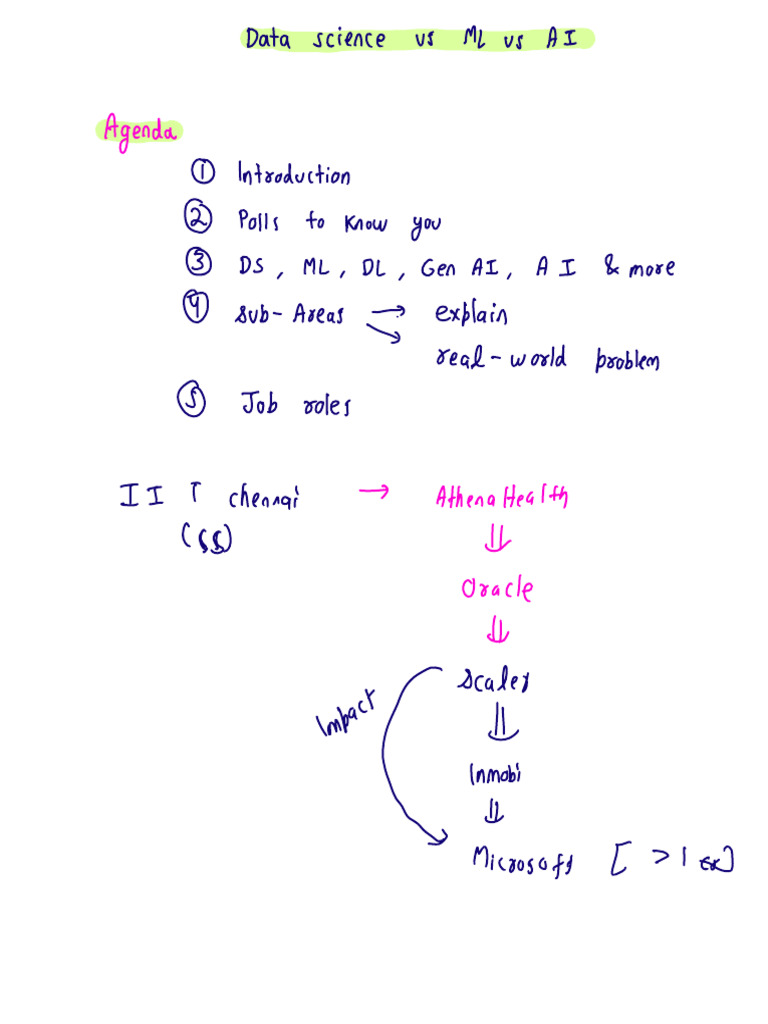 Data science vs ML vs AI
Agenda
① Introduction
② Polls to know you
③ DS, ML, DL, Gen AI, AI & more
④ Sub-Areas → explain
real-world problem
⑤ Job roles
IIT chennai → AthenaHealth
Oracle
Scaler
Impact
Inmobi
Microsoft [ >1 ]